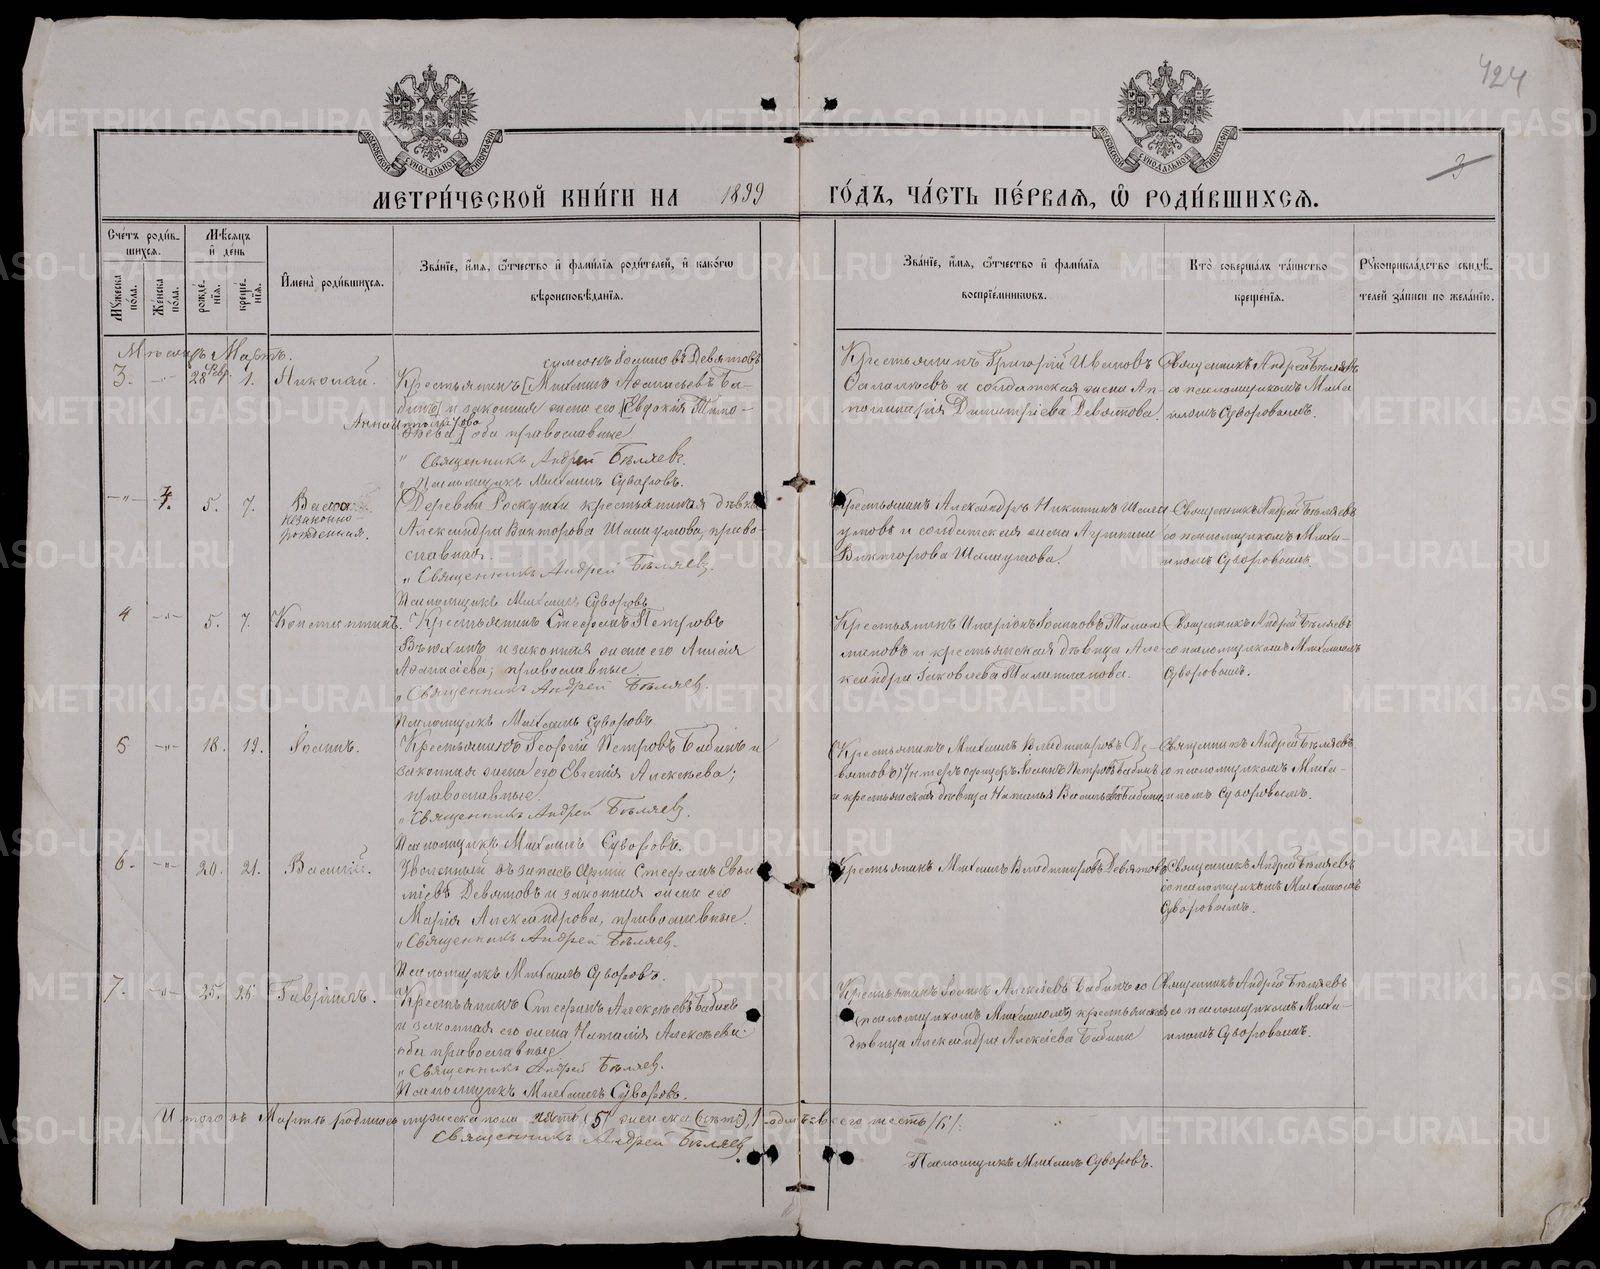 424
3
МЕТРИ́ЧЕСКОЙ КНИ́ГИ НА 1899 ГО́ДЪ, ЧА́СТЬ ПЕ́РВАЯ, Ѡ҆ РОДИ́ВШИХСЯ.
Сче́тъ роди́вшихся.
Му́жеска по́ла.
Же́нска по́ла.
Мѣ́сяцъ и҆ де́нь
рожде́нїя.
креще́нїя.
И҆мена̀ роди́вшихся.
Зва́нїе, и҆́мя, ѻ҆́тчество и҆ фами́лїя роди́телей, и҆ како́гѡ
вѣроисповѣ́данїя.
Зва́нїе, и҆́мя, ѻ҆́тчество и҆ фами́лїя
воспрїе́мниковъ.
Кто̀ соверша́лъ та́инство
креще́нїя.
Рꙋкоприкла́дство свидѣ́-
телей за́писи по жела́нїю.
Мѣсяцъ Мартъ.
3. 28 Февр. 1. Николай.
Симеонъ Іоанновъ Девятовъ
Крестьянинъ [Михаилъ Аѳанасьевъ Ба-
бинъ] и законная жена его [Евдокія Тимо-
Анна
ѳеева] оба православные
Священникъ Андрей Бѣляевъ.
Псаломщикъ Михаилъ Суворовъ.
Крестьянинъ Григорій Ивановъ
и солдатская жена Ап-
полинарія Димитріева Девятова.
Священникъ Андрей Бѣляевъ
со псаломщикомъ Миха-
иломъ Суворовымъ.
4. 5. 7.
незаконно-
рожденная.
Деревни крестьянская дѣвка
Александра Викторова Шашумова, право-
славная.
Священникъ Андрей Бѣляевъ.
Псаломщикъ Михаилъ Суворовъ.
Крестьянинъ Александръ Никитинъ Шаш-
умовъ и солдатская жена
Викторова Шашумова.
Священникъ Андрей Бѣляевъ
со псаломщикомъ Миха-
иломъ Суворовымъ.
4 5. 7. Константинъ.
Крестьянинъ Стефанъ Петровъ
и законная жена его Анисія
Аѳанасіева; православные
Священникъ Андрей Бѣляевъ.
Псаломщикъ Михаилъ Суворовъ.
Крестьянинъ Іоанновъ
и крестьянская дѣвица Але-
ксандра Іаковлева
Священникъ Андрей Бѣляевъ
со псаломщикомъ Михаиломъ
Суворовымъ.
5 18. 19. Іоаннъ.
Крестьянинъ Георгій Петровъ Бабинъ и
законная жена его Евгенія Алексѣева;
православные.
Священникъ Андрей Бѣляевъ.
Псаломщикъ Михаилъ Суворовъ.
(Крестьянинъ Михаилъ Владиміровъ Де-
вятовъ) Унтеръ офицеръ Іоаннъ Петровъ Бабинъ
и крестьянская дѣвица Наталья Васильева Бабина
Священникъ Андрей Бѣляевъ
со псаломщикомъ Миха-
иломъ Суворовымъ.
6. 20. 21. Василій.
Уволенный въ запасъ Арміи Стефанъ
Девятовъ и законная жена его
Марія Александрова, православные.
Священникъ Андрей Бѣляевъ.
Псаломщикъ Михаилъ Суворовъ.
Крестьянинъ Михаилъ Владиміровъ Девятовъ
Священникъ Андрей Бѣляевъ
со псаломщикомъ Михаиломъ
Суворовымъ.
7. 25. 25 Гавріилъ.
Крестьянинъ Стефанъ Алексѣевъ Бабинъ
и законная его жена Наталія Алексѣева
оба православные.
Священникъ Андрей Бѣляевъ.
Псаломщикъ Михаилъ Суворовъ.
Крестьянинъ Іоаннъ Алексіевъ Бабинъ со
(псаломщикомъ Михаиломъ) крестьянская
дѣвица Александра Алексіева Бабина
Священникъ Андрей Бѣляевъ
со псаломщикомъ Миха-
иломъ Суворовымъ.
Итого въ Мартѣ родилось мужеска пола пять (5) женска 1 всего шесть /6/.
Священникъ Андрей Бѣляевъ
Псаломщикъ Михаилъ Суворовъ.
METRIKI.GASO-URAL.RU